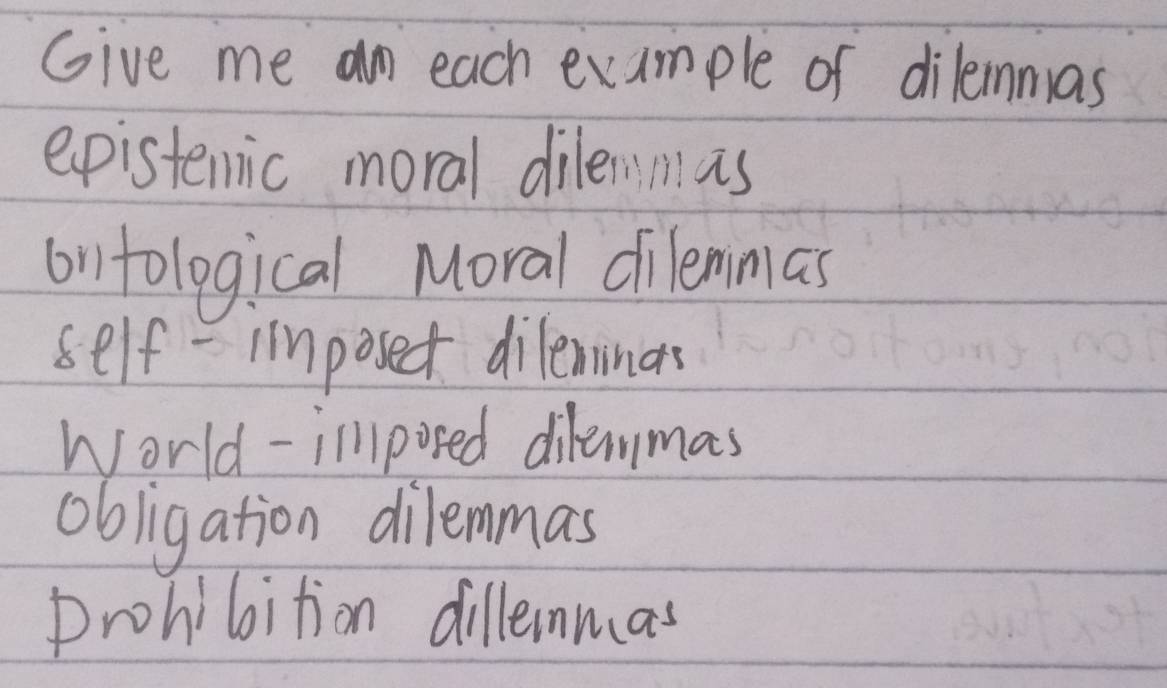 Give me an each example of dilemmas
epistemic moral dilemmas
ontological Moral dilemmas
self-imposed dilemmas
World-imposed dilemmas
obligation dilemmas
prohibition dillemmas